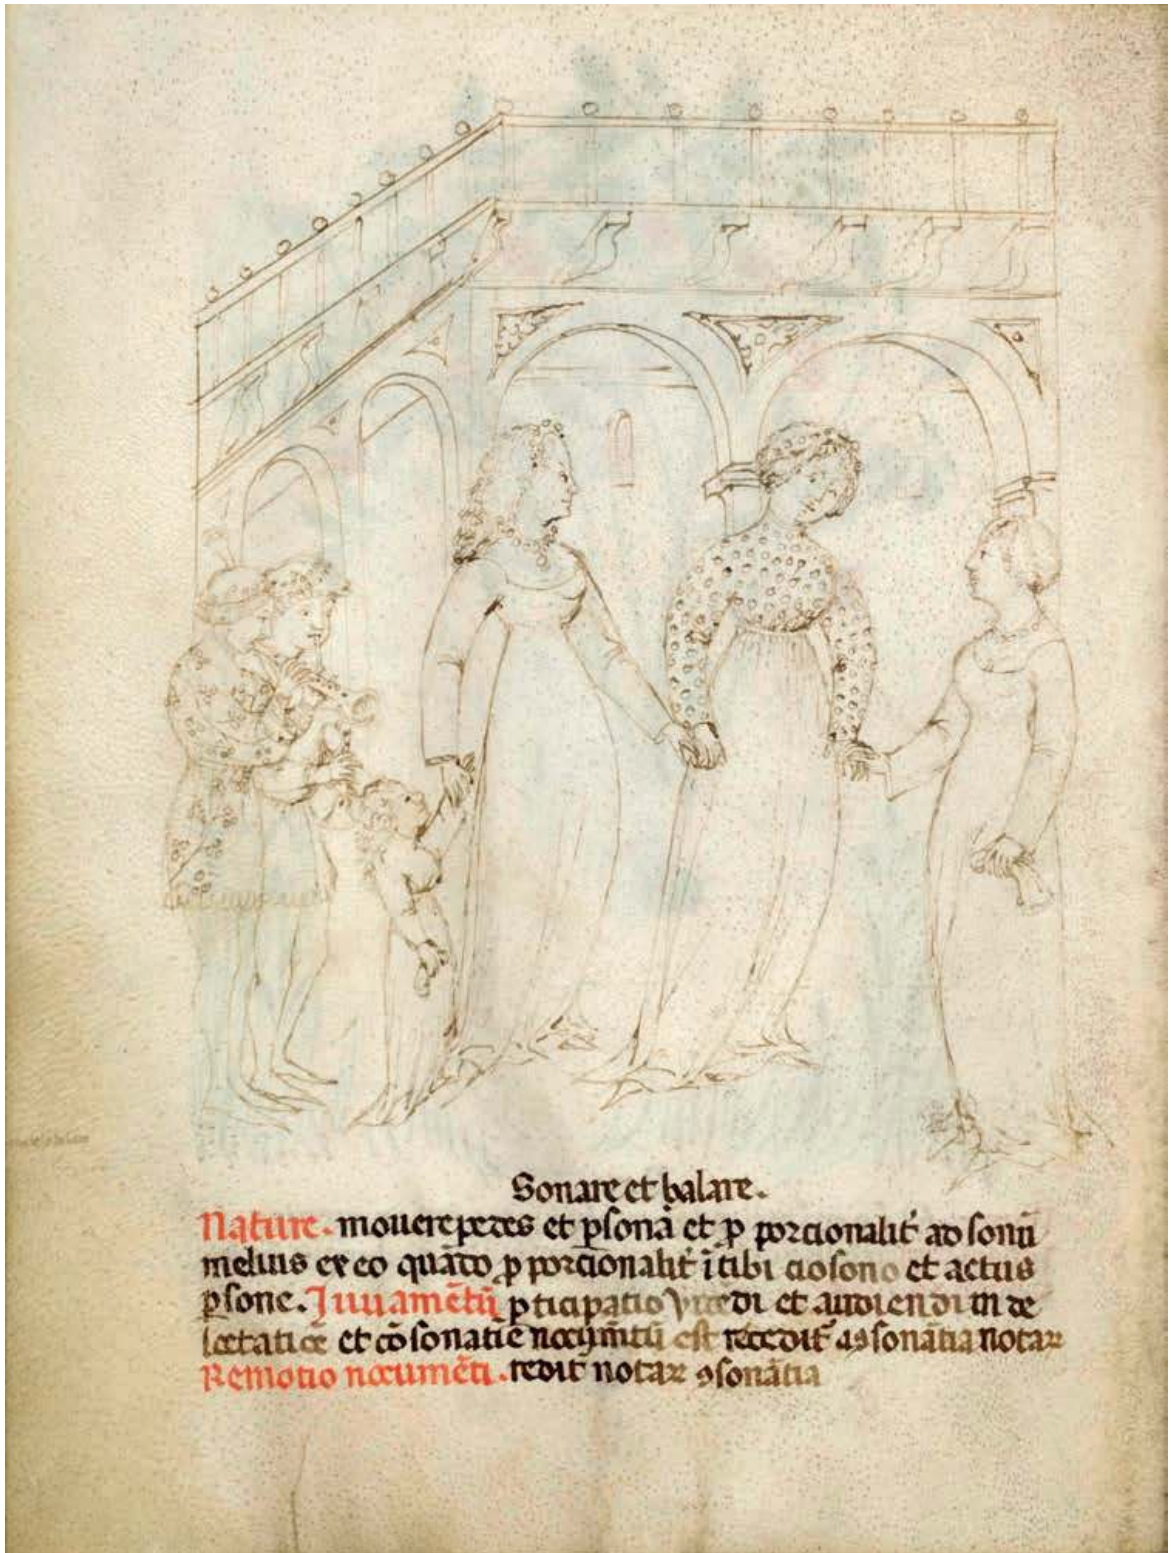 Sonare et balare.
Nature. mouere pedes et ꝑsonā et ꝓ porcionalit̃ ad sonū
melius ex eo quādo ꝓ porcionalit̃ ī tibi cio sono et actus
ꝑsone. Juuamētū ꝑticipatio et audiendi in de
et cōsonātie nocum̄tū est recedit̃ ꝯsonātia notaꝝ
Remotio nocumēti. redit̃ notaꝝ ꝯsonātia